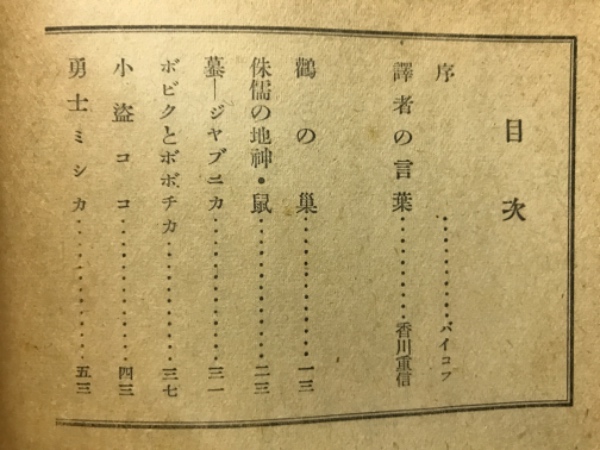 目次
序……………バイコフ
譯者の言葉……………香川重信
鸛の巢……………一三
侏儒の地神・鼠……………二三
蟇―ジヤブニカ……………三一
ボビクとボボチカ……………三七
小盜ココ……………四三
勇士ミシカ……………五三